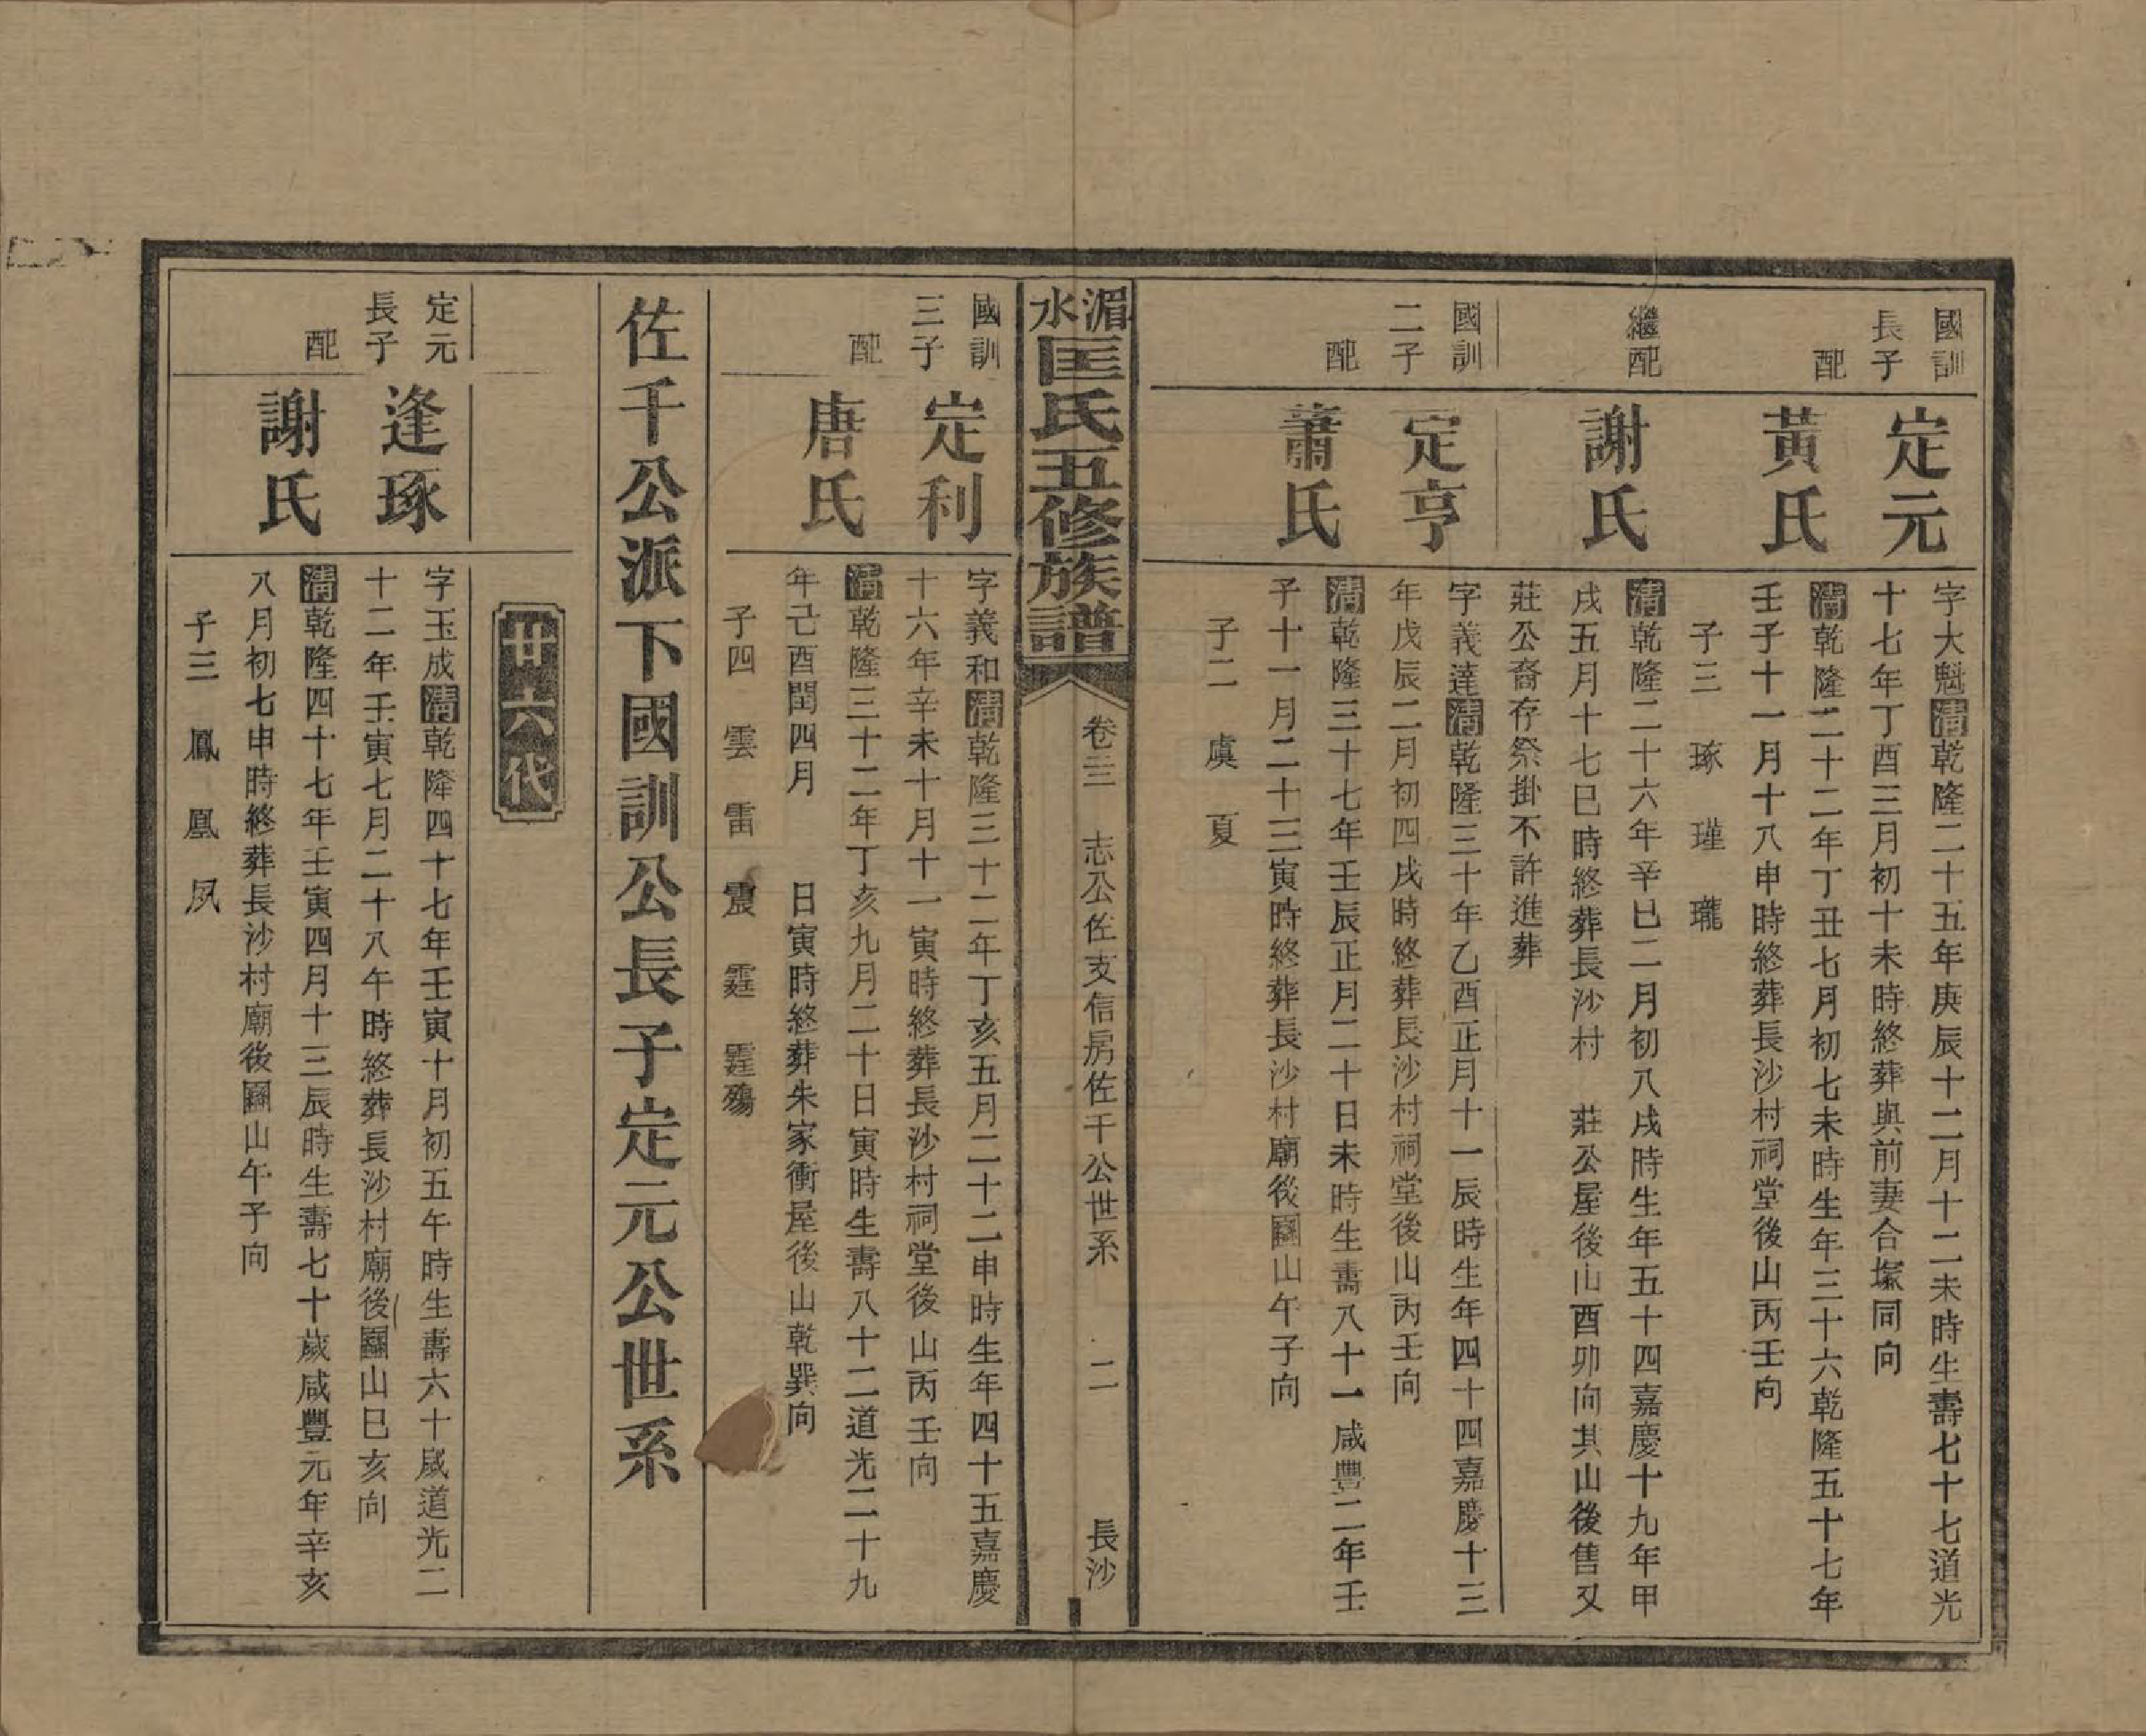 國訓
長子
定元
字大魁清乾隆二十五年庚辰十二月十二未時生壽七十七道光
十七年丁酉三月初十未時終葬與前妻合塚同向
配
黃氏
清乾隆二十二年丁丑七月初七未時生年三十六乾隆五十七年
壬子十一月十八申時終葬長沙村祠堂後山丙壬向
子三 琢 瑾 瓏
繼配
謝氏
清乾隆二十六年辛巳二月初八戌時生年五十四嘉慶十九年甲
戌五月十七巳時終葬長沙村 莊公屋後山酉卯向其山後售又
莊公裔存祭掛不許進葬
國訓
二子
定亨
字義達清乾隆三十年乙酉正月十一辰時生年四十四嘉慶十三
年戊辰二月初四戌時終葬長沙村祠堂後山丙壬向
配
蕭氏
清乾隆三十七年壬辰正月二十日未時生壽八十一咸豐二年壬
子十一月二十三寅時終葬長沙村廟後圝山午子向
子二 虞 夏
湄水匡氏五修族譜
卷三 志公佐支信房佐千公世系 二 長沙
國訓
三子
定利
字義和清乾隆三十二年丁亥五月二十二申時生年四十五嘉慶
十六年辛未十月十一寅時終葬長沙村祠堂後山丙壬向
配
唐氏
清乾隆三十二年丁亥九月二十日寅時生壽八十二道光二十九
年己酉閏四月 日寅時終葬朱家衝屋後山乾巽向
子四 雲 雷 震 霆 霆殤
佐千公派下國訓公長子定元公世系
卅六代
定元
長子
逢琢
字玉成清乾隆四十七年壬寅十月初五午時生壽六十歲道光二
十二年壬寅七月二十八午時終葬長沙村廟後圝山巳亥向
配
謝氏
清乾隆四十七年壬寅四月十三辰時生壽七十歲咸豐元年辛亥
八月初七申時終葬長沙村廟後圝山午子向
子三 鳳 凰 夙